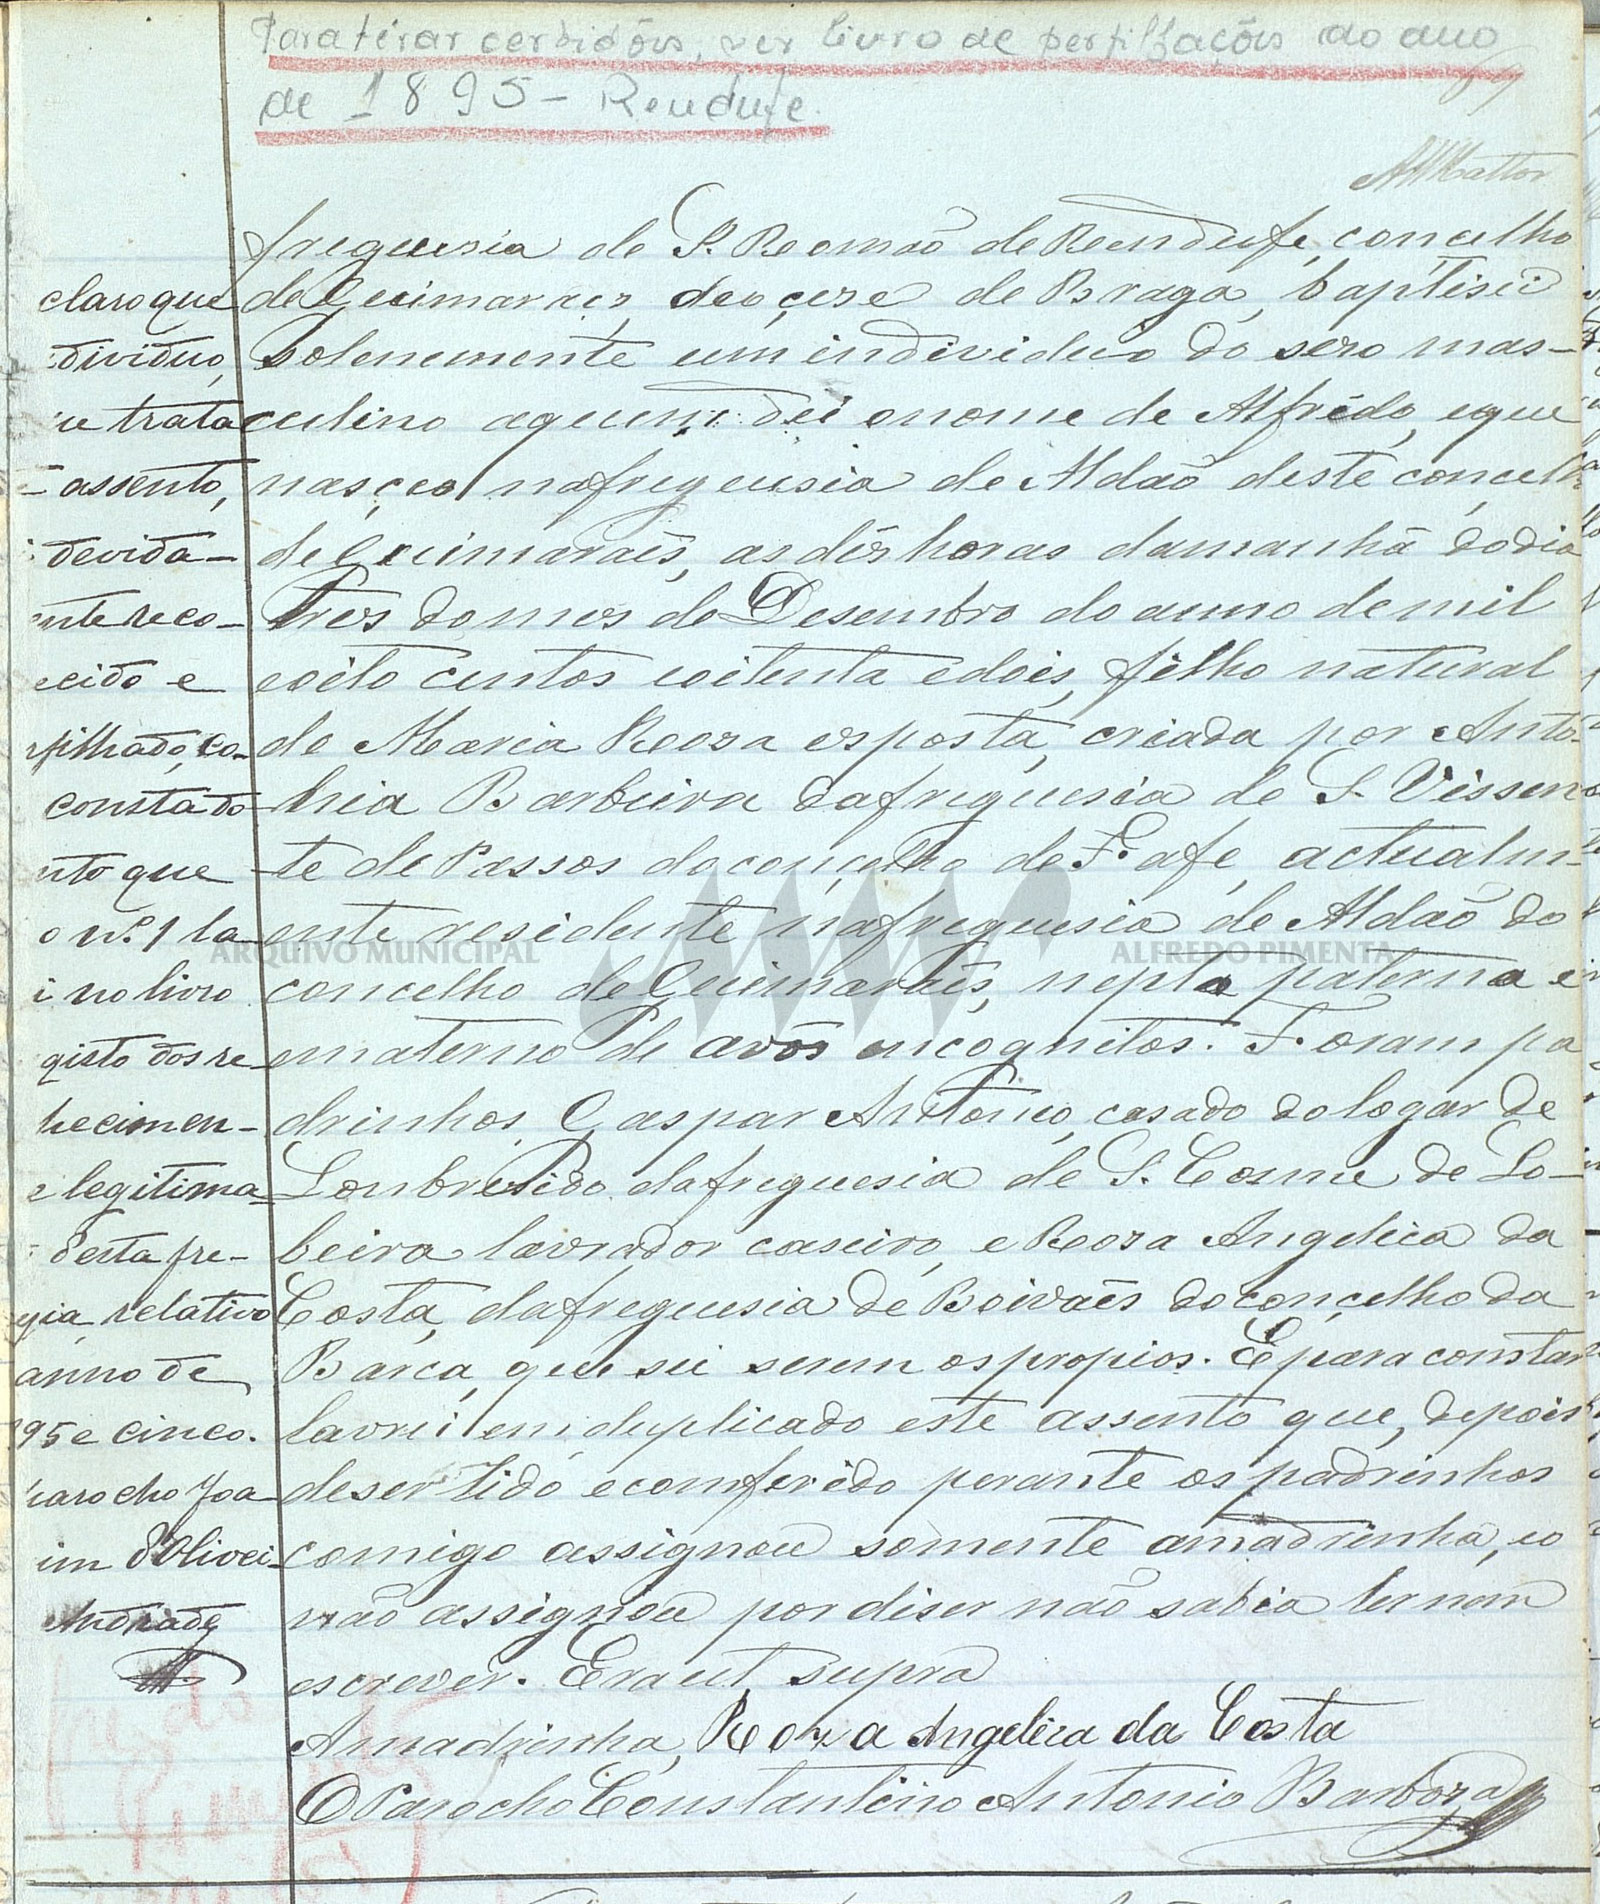 Para tirar certidões, ver livro de perfilhações do ano
de 1895 - Rendufe.
AMMattos
freguesia de S. Romão de Rendufe, concelho
de Guimaraes, deocese de Braga, baptisei
solenemente um individuo do sexo mas-
culino aquem dei onome de Alfredo, eque
nasceo nafreguesia de Aldaõ deste concelho
de Guimaraẽs, as dés horas damanhã dodia
tres domes de Desembro do anno de mil
eoito centos eoitenta edois, filho natural
de Maria Roza esposta, criada por Anto-
nia Barbeira dafreguesia de S. Vissen
te de Passos doconcelho de Fafe, actualm-
ente residente nafreguesia de Aldaõ do
concelho de Guimaraẽs, nepto paterno e
materno de avós encognitos. Foram pa
drinhos Gaspar Antonio, casado do logar de
da freguesia de S. Cosme de Lo-
beira lavrador caseiro, e Roza Angelica da
Costa, dafreguesia de Boivaẽs doconcelho da
Barca, que sei serem os propios. E para constar
lavrei em duplicado este assento que, depois
deser lido econferido perante os padrinhos
comigo assignou somente amadrinha, eo
não assignou por diser não sabia ler nem
escrever. Era ut supra
Amadrinha, Roza Angelica da Costa
O Parocho Constantino Antonio Barboza
claro que
dividuo,
ue trata
assento,
devida-
nte reco-
ecido e
rfilhado, co-
consta do
nto que
o nº 1 la
i no livro
gisto dos re
hecimen-
e legitima
desta fre-
gia relativo
anno de
95 e cinco.
parocho Joa
im d'Olivei
Andrade
ARQUIVO MUNICIPAL ALFREDO PIMENTA